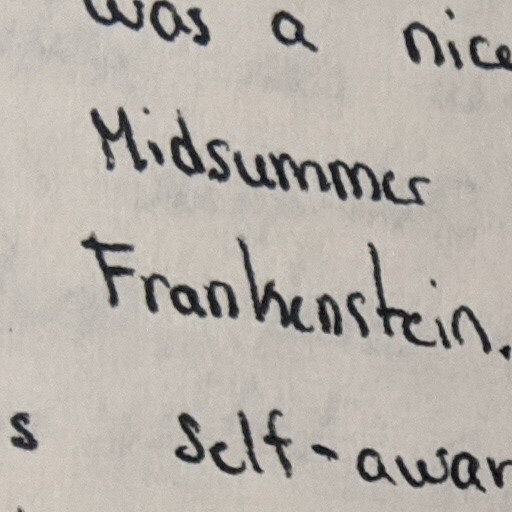 was a nice
Midsummer
Frankenstein.
s self-awar